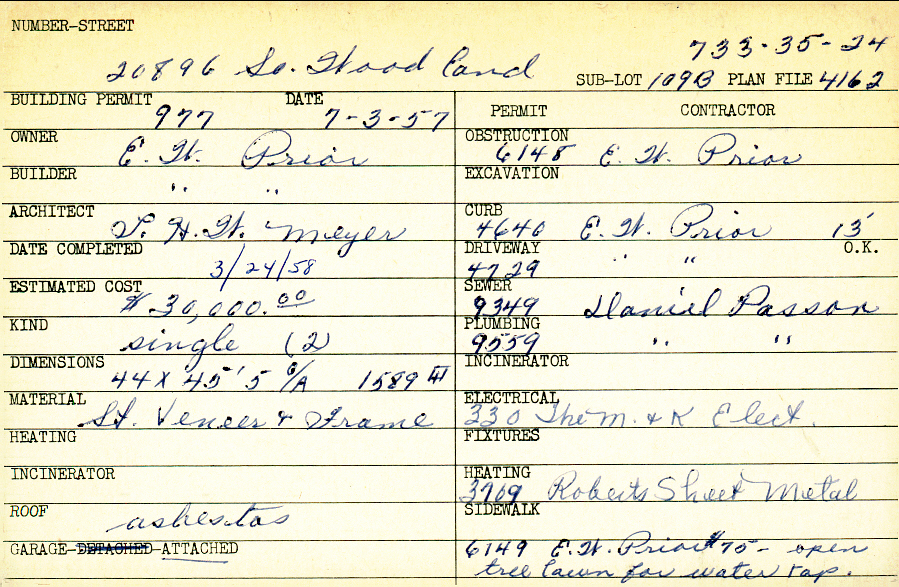 NUMBER-STREET
733-35-24
20896 So. Wood Land
SUB-LOT 109B PLAN FILE 4162
BUILDING PERMIT DATE
977 7-3-57
OWNER
E. W. Prior
BUILDER
" "
ARCHITECT
T. H. W. Meyer
DATE COMPLETED
3/24/58
ESTIMATED COST
$ 30,000.00
KIND
single (2)
DIMENSIONS
44 x 45'5 G/A 1589
MATERIAL
St. Veneer & Frame
HEATING
INCINERATOR
ROOF
asbestos
GARAGE-DETACHED-ATTACHED
PERMIT CONTRACTOR
OBSTRUCTION
6148 E. W. Prior
EXCAVATION
CURB
4640 E. W. Prior 13'
DRIVEWAY O.K.
4729 " "
SEWER
9349 Daniel Passon
PLUMBING
9559 " "
INCINERATOR
ELECTRICAL
330 The M. & K Elect.
FIXTURES
HEATING
3709 Roberts Sheet Metal
SIDEWALK
6149 E. W. Prior $75- open
tree lawn for water tap.